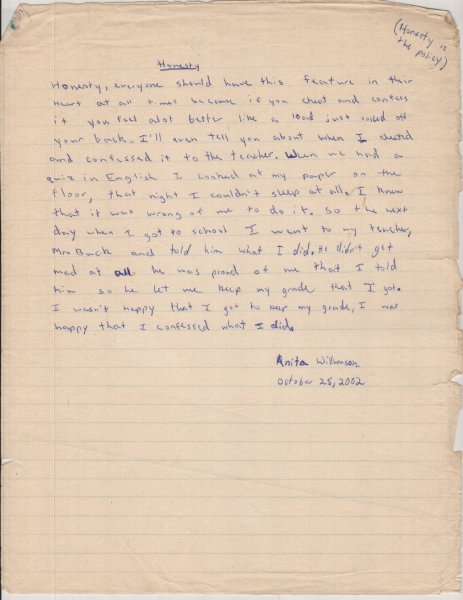 (Honesty is
the policy)
Honesty
Honesty, everyone should have this feature in their
Heart at all times because if you cheat and confess
it you feel alot better like a load just rolled off
your back. I'll even tell you about when I cheated
and confessed it to the teacher. When we had a
quiz in English I looked at my paper on the
floor, that night I couldn't sleep at all. I knew
that it was wrong of me to do it. So the next
day when I got to school I went to my teacher,
Mr. Buck and told him what I did. He didn't get
mad at all he was proud of me that I told
him so he let me keep my grade that I got.
I wasn't happy that I got to keep my grade, I was
happy that I confessed what I did.
Anita Williamson
October 25, 2002